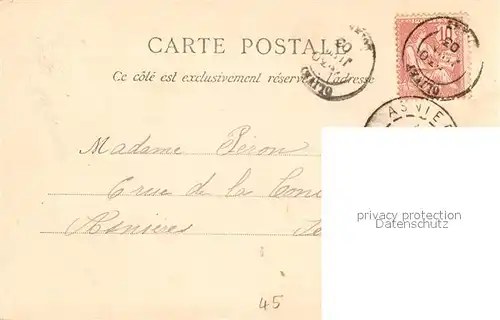 CARTE POSTALE
Ce côté est exclusivement réservé l'adresse
10
ASNIE
Madame Péron
6 rue de la
Asnières
privacy protection
Datenschutz
45